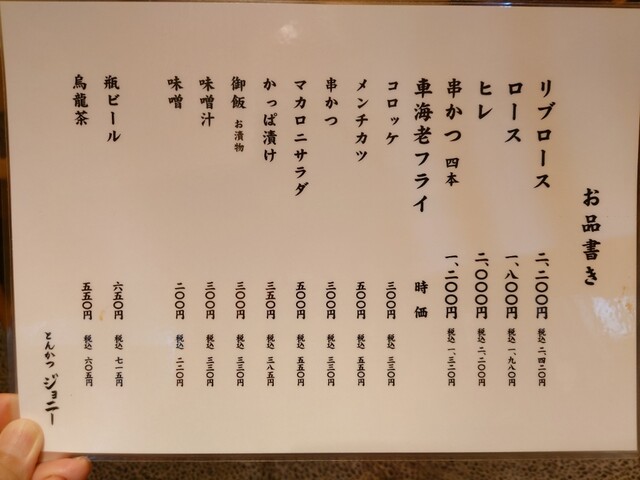 お品書き
リブロース 二、二〇〇円 税込 二、四二〇円
ロース 一、八〇〇円 税込 一、九八〇円
ヒレ 二、〇〇〇円 税込 二、二〇〇円
串かつ 四本 一、二〇〇円 税込 一、三二〇円
車海老フライ 時価
コロッケ 三〇〇円 税込 三三〇円
メンチカツ 五〇〇円 税込 五五〇円
串かつ 三〇〇円 税込 三三〇円
マカロニサラダ 五〇〇円 税込 五五〇円
かっぱ漬け 三五〇円 税込 三八五円
御飯 お漬物 三〇〇円 税込 三三〇円
味噌汁 三〇〇円 税込 三三〇円
味噌 二〇〇円 税込 二二〇円
瓶ビール 六五〇円 税込 七一五円
烏龍茶 五五〇円 税込 六〇五円
とんかつ ジョニー